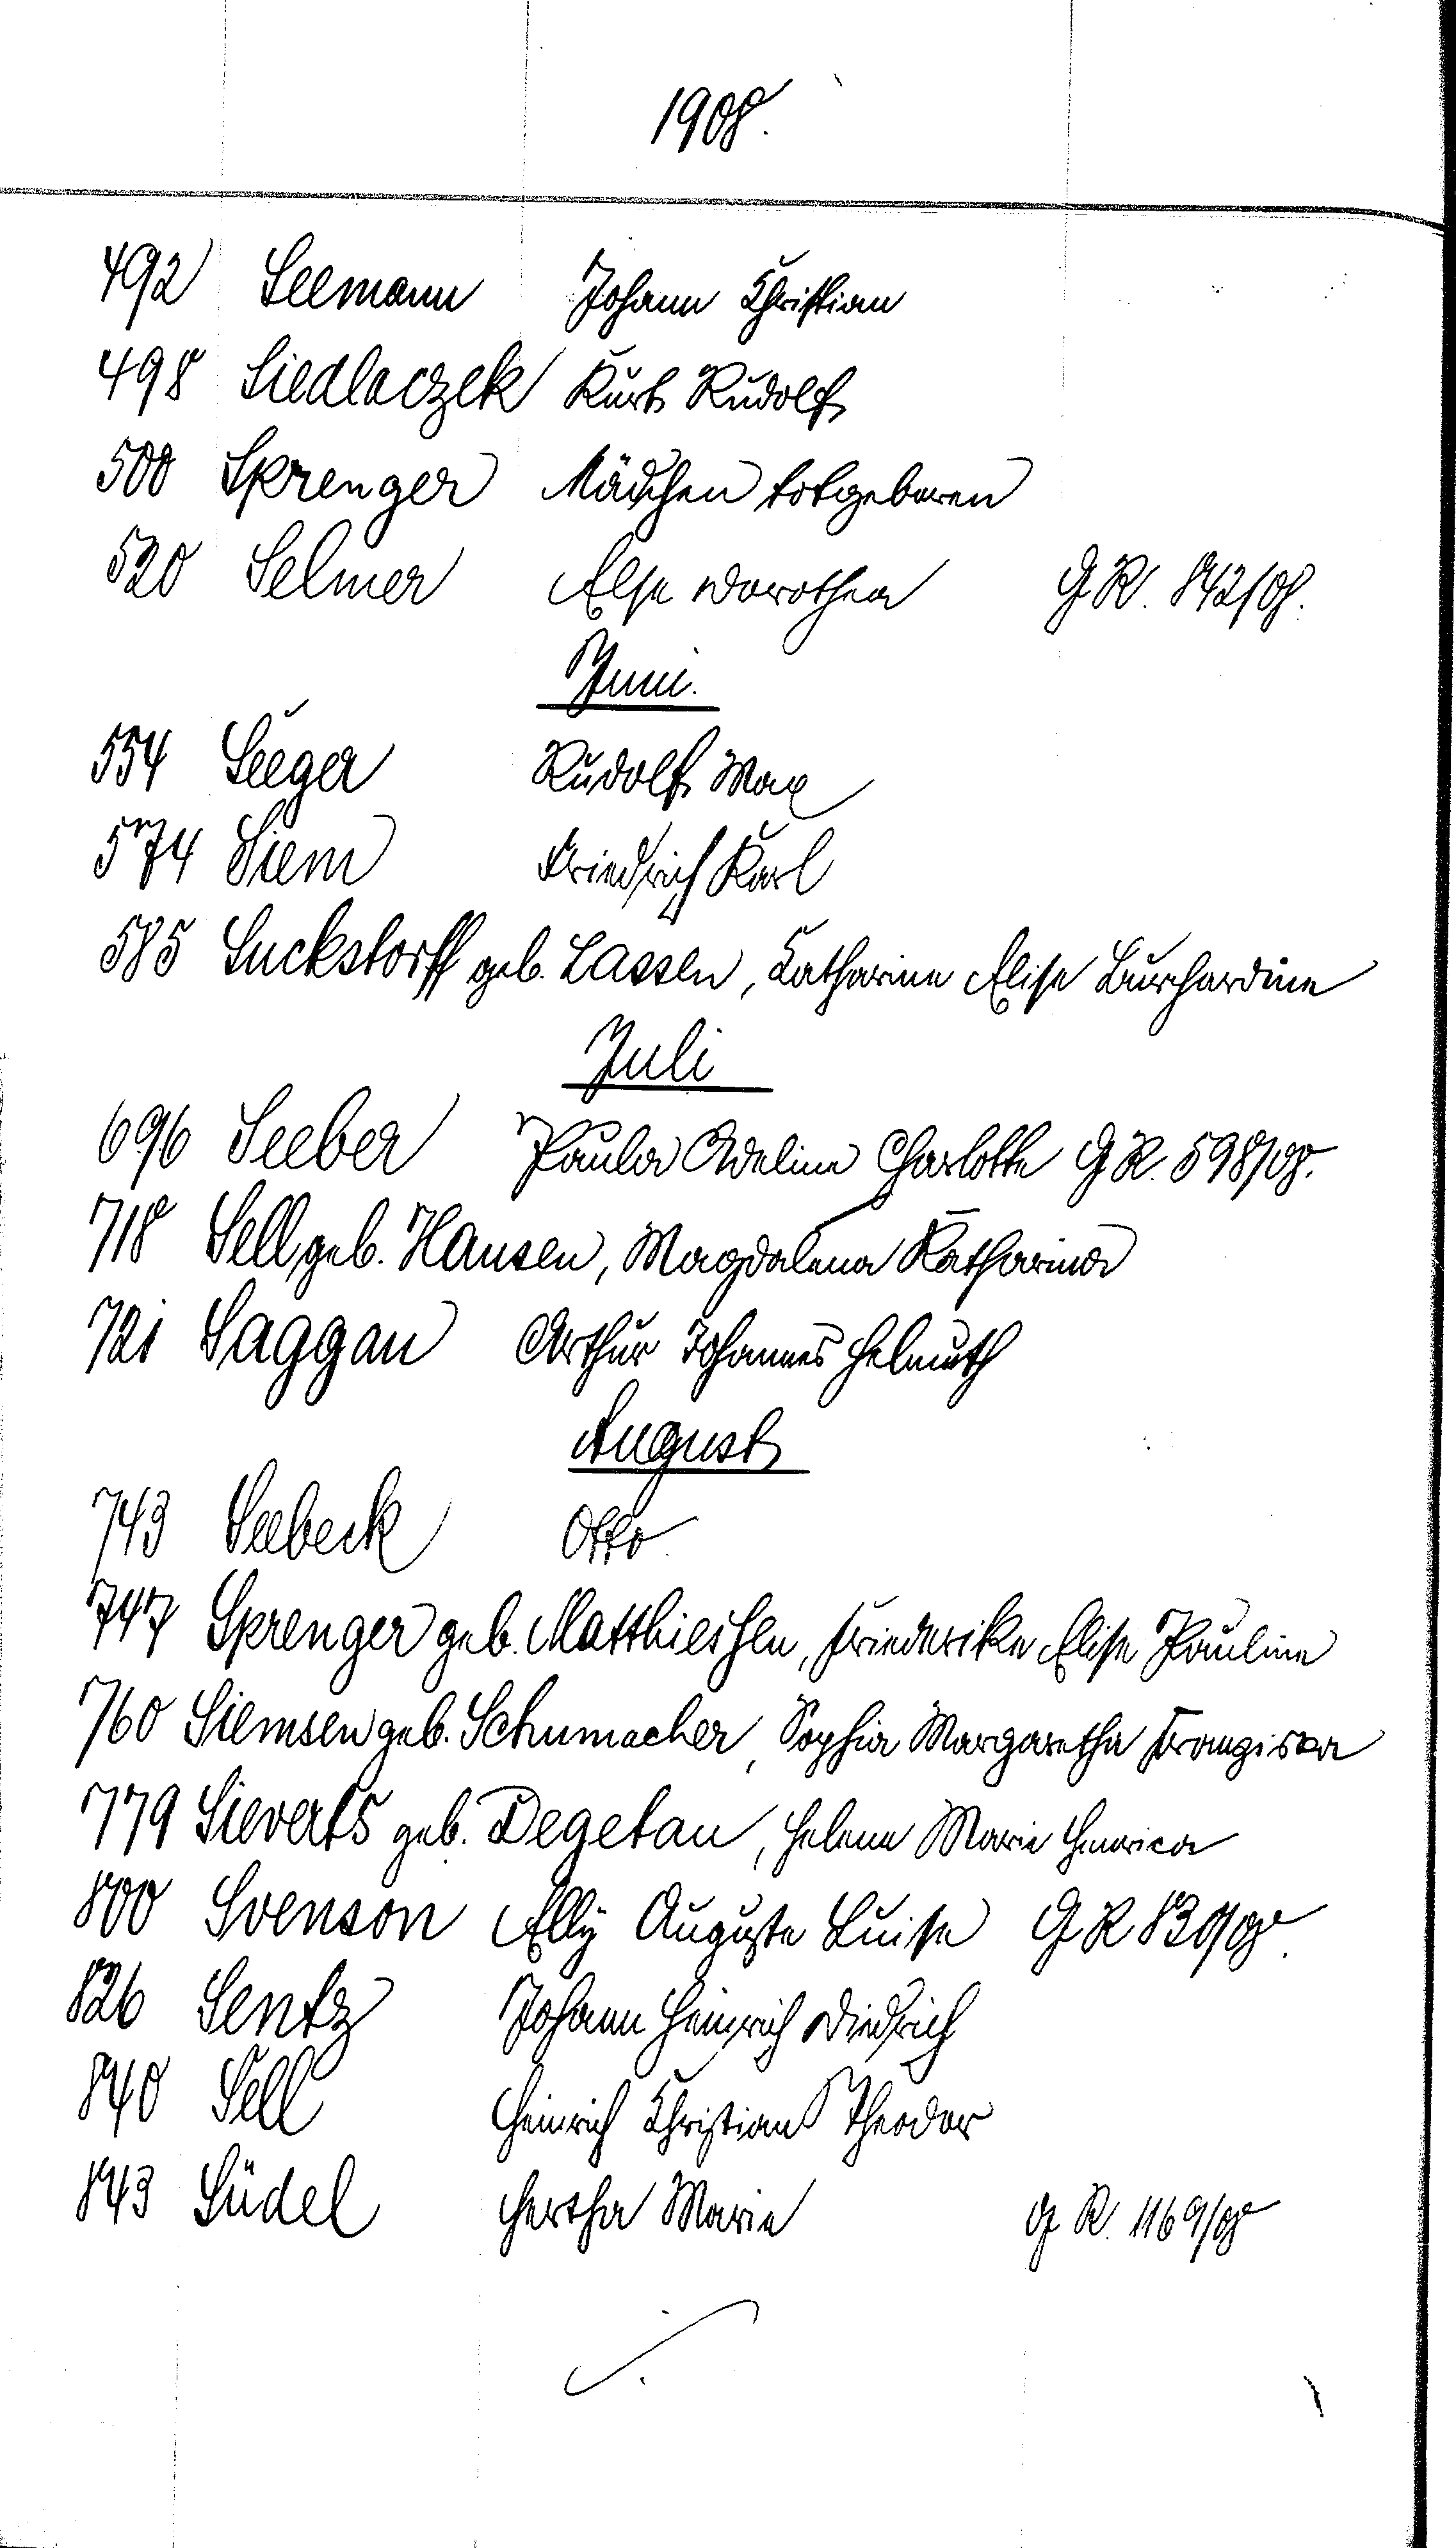 1908.
492 Seemann Johann Christian
498 Siedlaczek Kurt Rudolf
500 Sprenger Mädchen totgeboren
520 Selmer Else Dorothea G R. 842/08.
Juni.
554 Seeger Rudolf Max
574 Siem Friedrich Karl
585 Suckstorff geb. Lassen, Catharine Elise Burchardine
Juli
696 Seeber Paula Adeline Charlotte G R. 598/08.
718 Sell geb. Hansen, Magdalena Katharina
721 Saggau Arthur Johannes Helmuth
August
743 Seebeck Otto
747 Sprenger geb. Matthiessen, Friederike Elise Pauline
760 Siemsen geb. Schumacher, Sophia Margaretha Franziska
779 Sieverts geb. Degetau, Helene Marie Henrica
800 Svenson Elly Auguste Luise G R 830/08.
826 Sentz Johann Heinrich Diedrich
840 Sell Heinrich Christian Theodor
843 Südel Hertha Marie G R. 1169/08